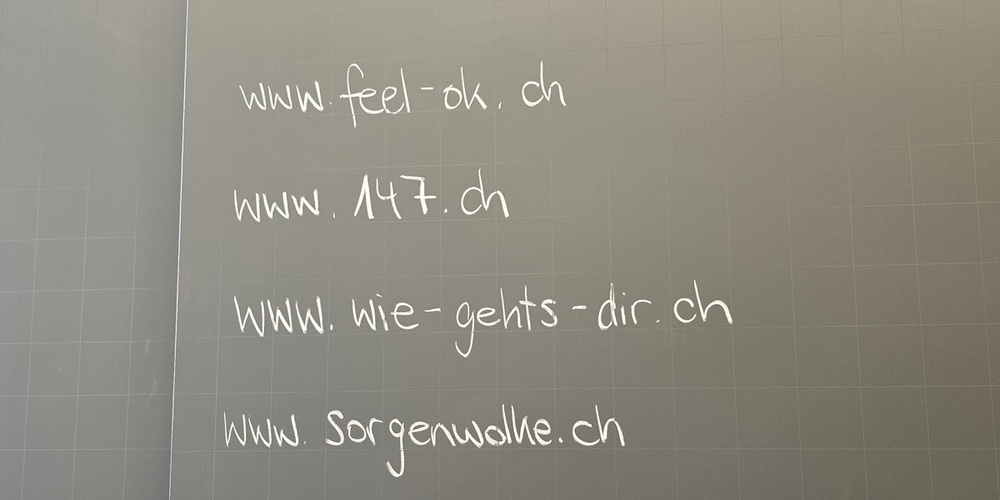 www.feel-ok.ch
www.147.ch
www.wie-gehts-dir.ch
www.sorgenwolke.ch